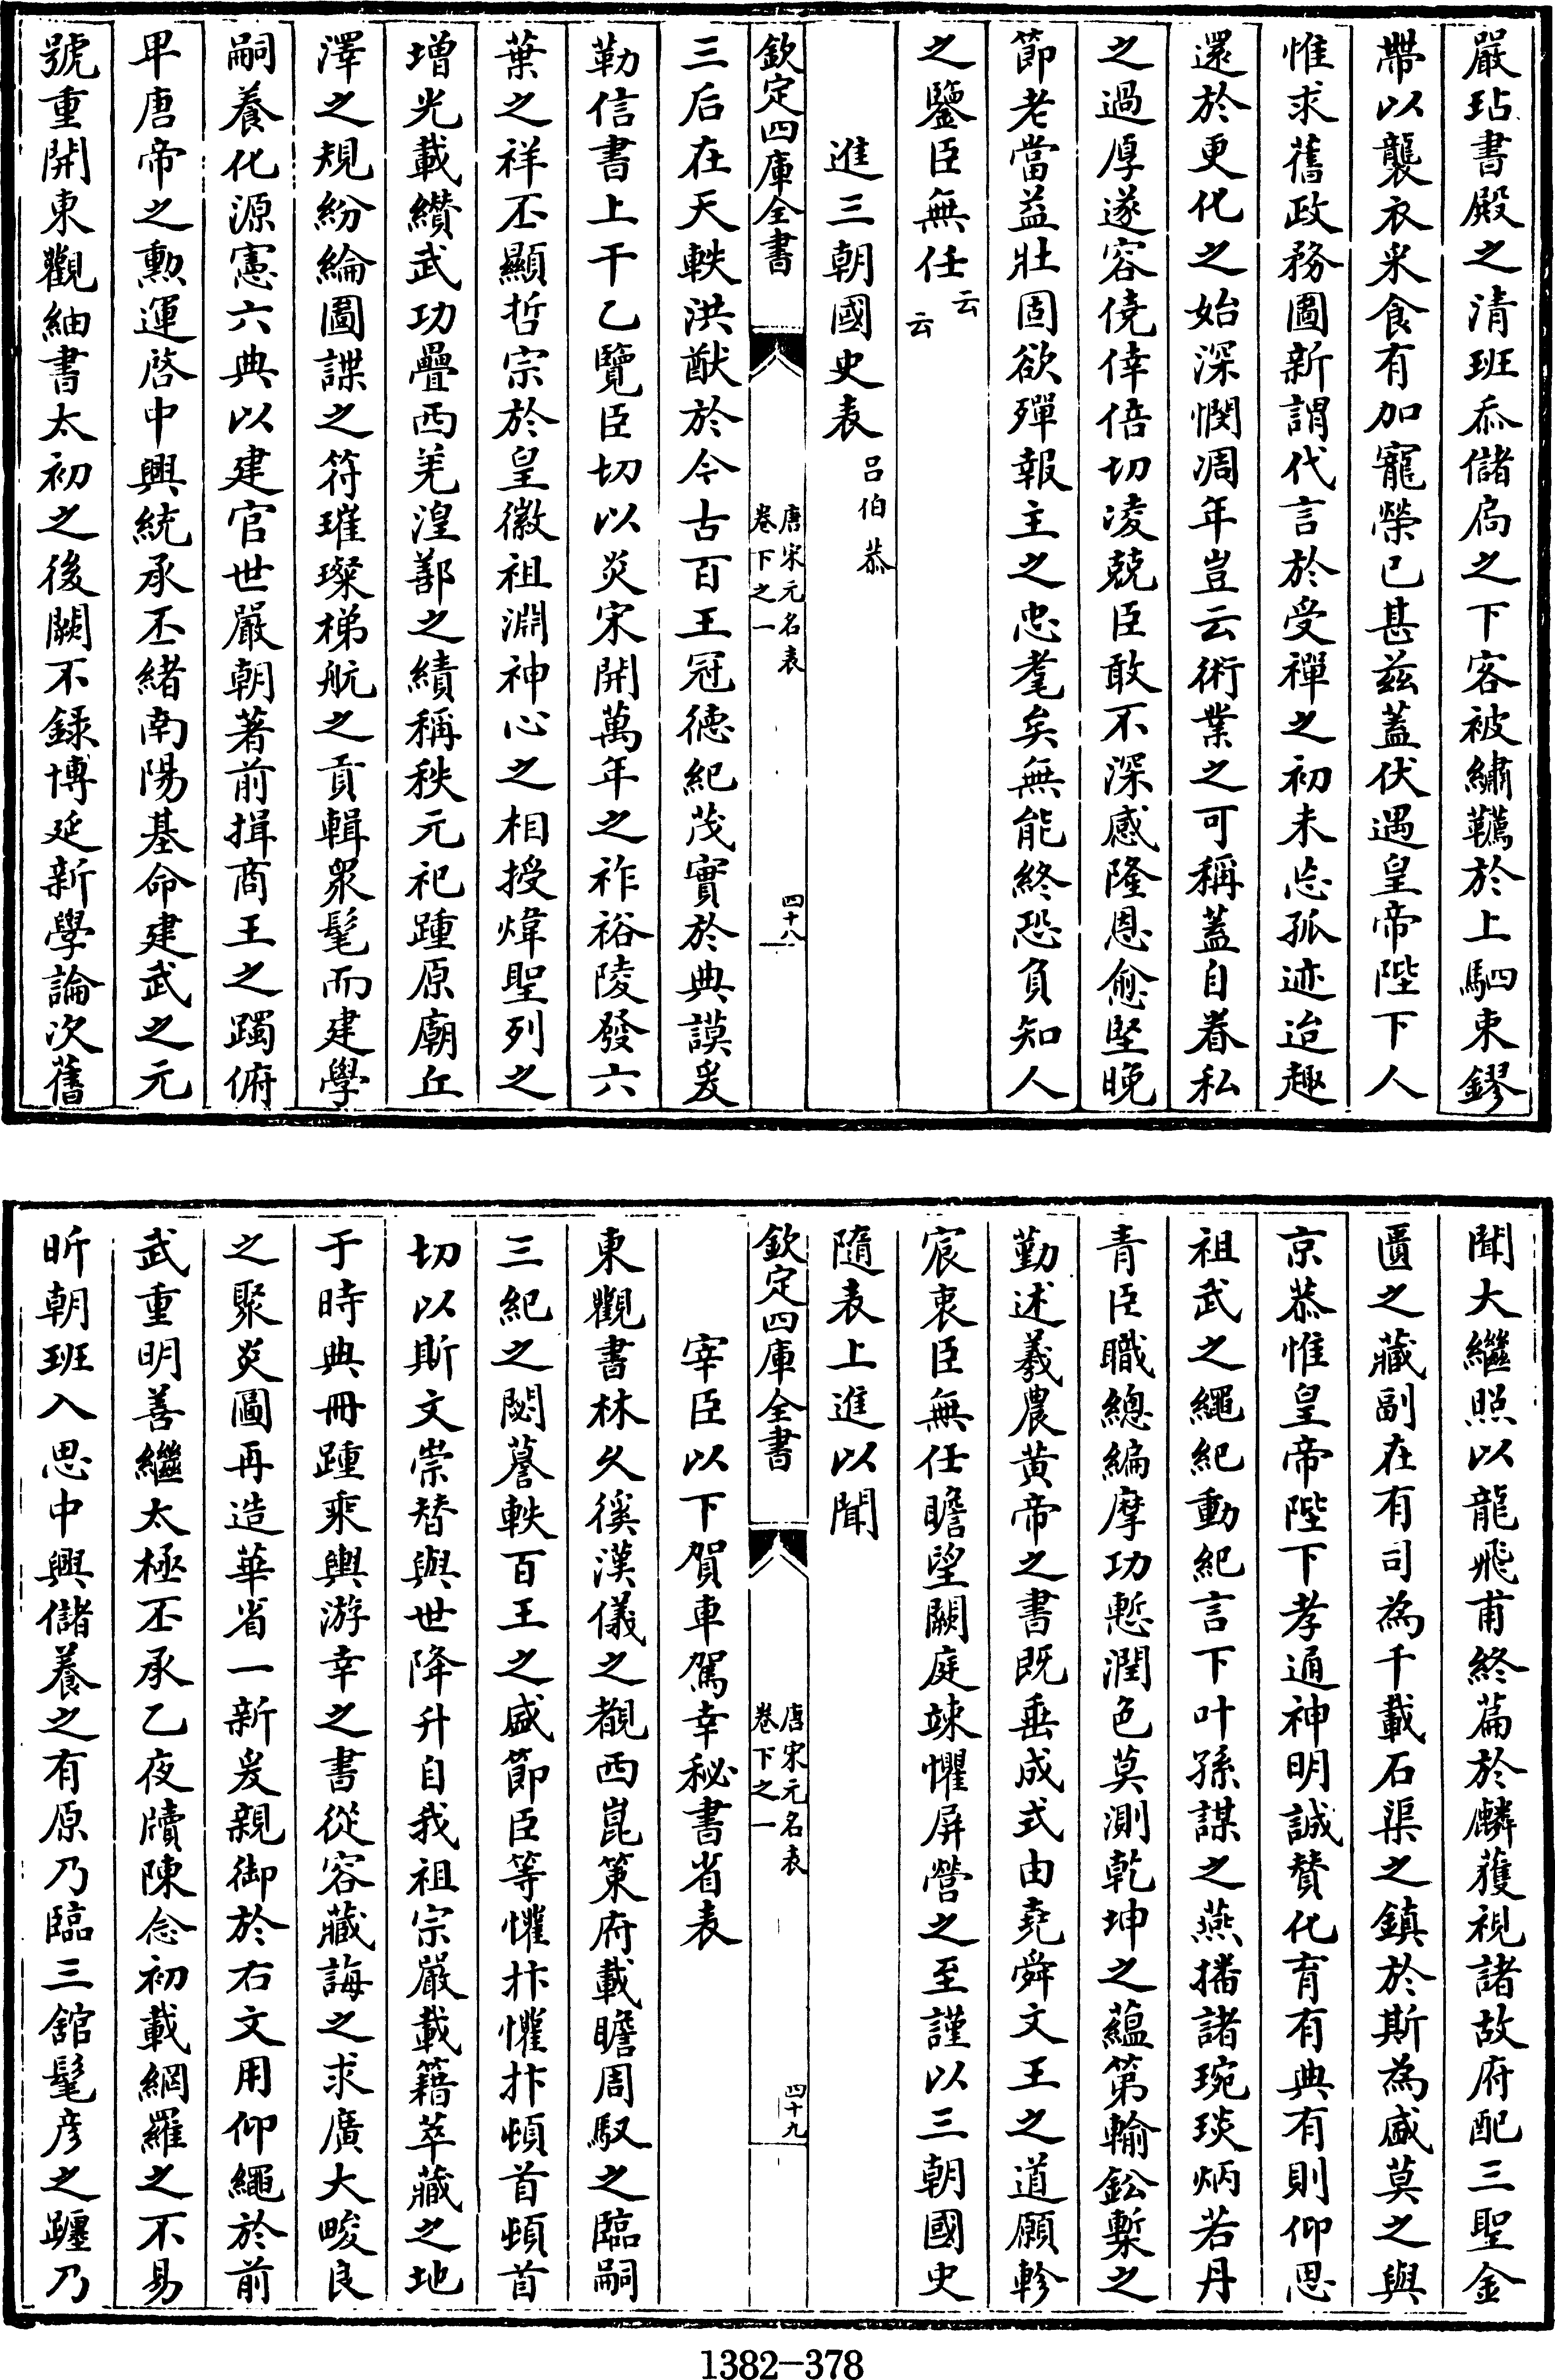 嚴玷書殿之清班忝儲扃之下客被繡韉於上駟束鏐
帶以襲衣采食有加寵榮已甚兹蓋伏遇皇帝陛下人
惟求舊政務圖新謂代言於受禪之初未忘孤迹迨趣
還於更化之始深憫凋年豈云術業之可稱蓋自眷私
之過厚遂容僥倖倍切凌兢臣敢不深感隆恩愈堅晚
節老當益壯固欲殫報主之忠耄矣無能終恐負知人
之鑒臣無任云云
進三朝國史表 呂伯恭
欽定四庫全書 唐宋元名表 卷下之一 四十八
三后在天軼洪猷於今古百王冠德紀茂實於典謨爰
勒信書上干乙覽臣切以炎宋開萬年之祚裕陵發六
葉之祥丕顯哲宗於皇徽祖淵神心之相授煒聖列之
增光載纘武功疊西羌湟鄯之績稱秩元祀踵原廟丘
澤之規紛綸圖諜之符璀璨梯航之貢輯衆髦而建學
嗣養化源憲六典以建官世嚴朝著前揖商王之躅俯
甲唐帝之勲運啓中興統承丕緒南陽基命建武之元
號重開東觀紬書太初之後闕不録博延新學論次舊
聞大繼照以龍飛甫終篇於麟獲視諸故府配三聖金
匱之藏副在有司為千載石渠之鎮於斯為盛莫之與
京恭惟皇帝陛下孝通神明誠賛化育有典有則仰思
祖武之繩紀動紀言下叶孫謀之燕播諸琬琰炳若丹
青臣職總編摩功慙潤色莫測乾坤之蘊第輸鉛槧之
勤述羲農黄帝之書既垂成式由堯舜文王之道願軫
宸衷臣無任瞻望闕庭竦懼屏營之至謹以三朝國史
隨表上進以聞
欽定四庫全書 唐宋元名表 卷下之一 四十九
宰臣以下賀車駕幸秘書省表
東觀書林久徯漢儀之覩西崑策府載瞻周馭之臨嗣
三紀之閟蕚軼百王之盛節臣等懽抃懽抃頓首頓首
切以斯文崇替與世降升自我祖宗嚴載籍萃藏之地
于時典冊踵乘輿游幸之書從容藏誨之求廣大畯良
之聚炎圖再造華省一新爰親御於右文用仰繩於前
武重明善繼太極丕承乙夜牘陳念初載網羅之不易
昕朝班入思中興儲養之有原乃臨三舘髦彦之躔乃
1382-378